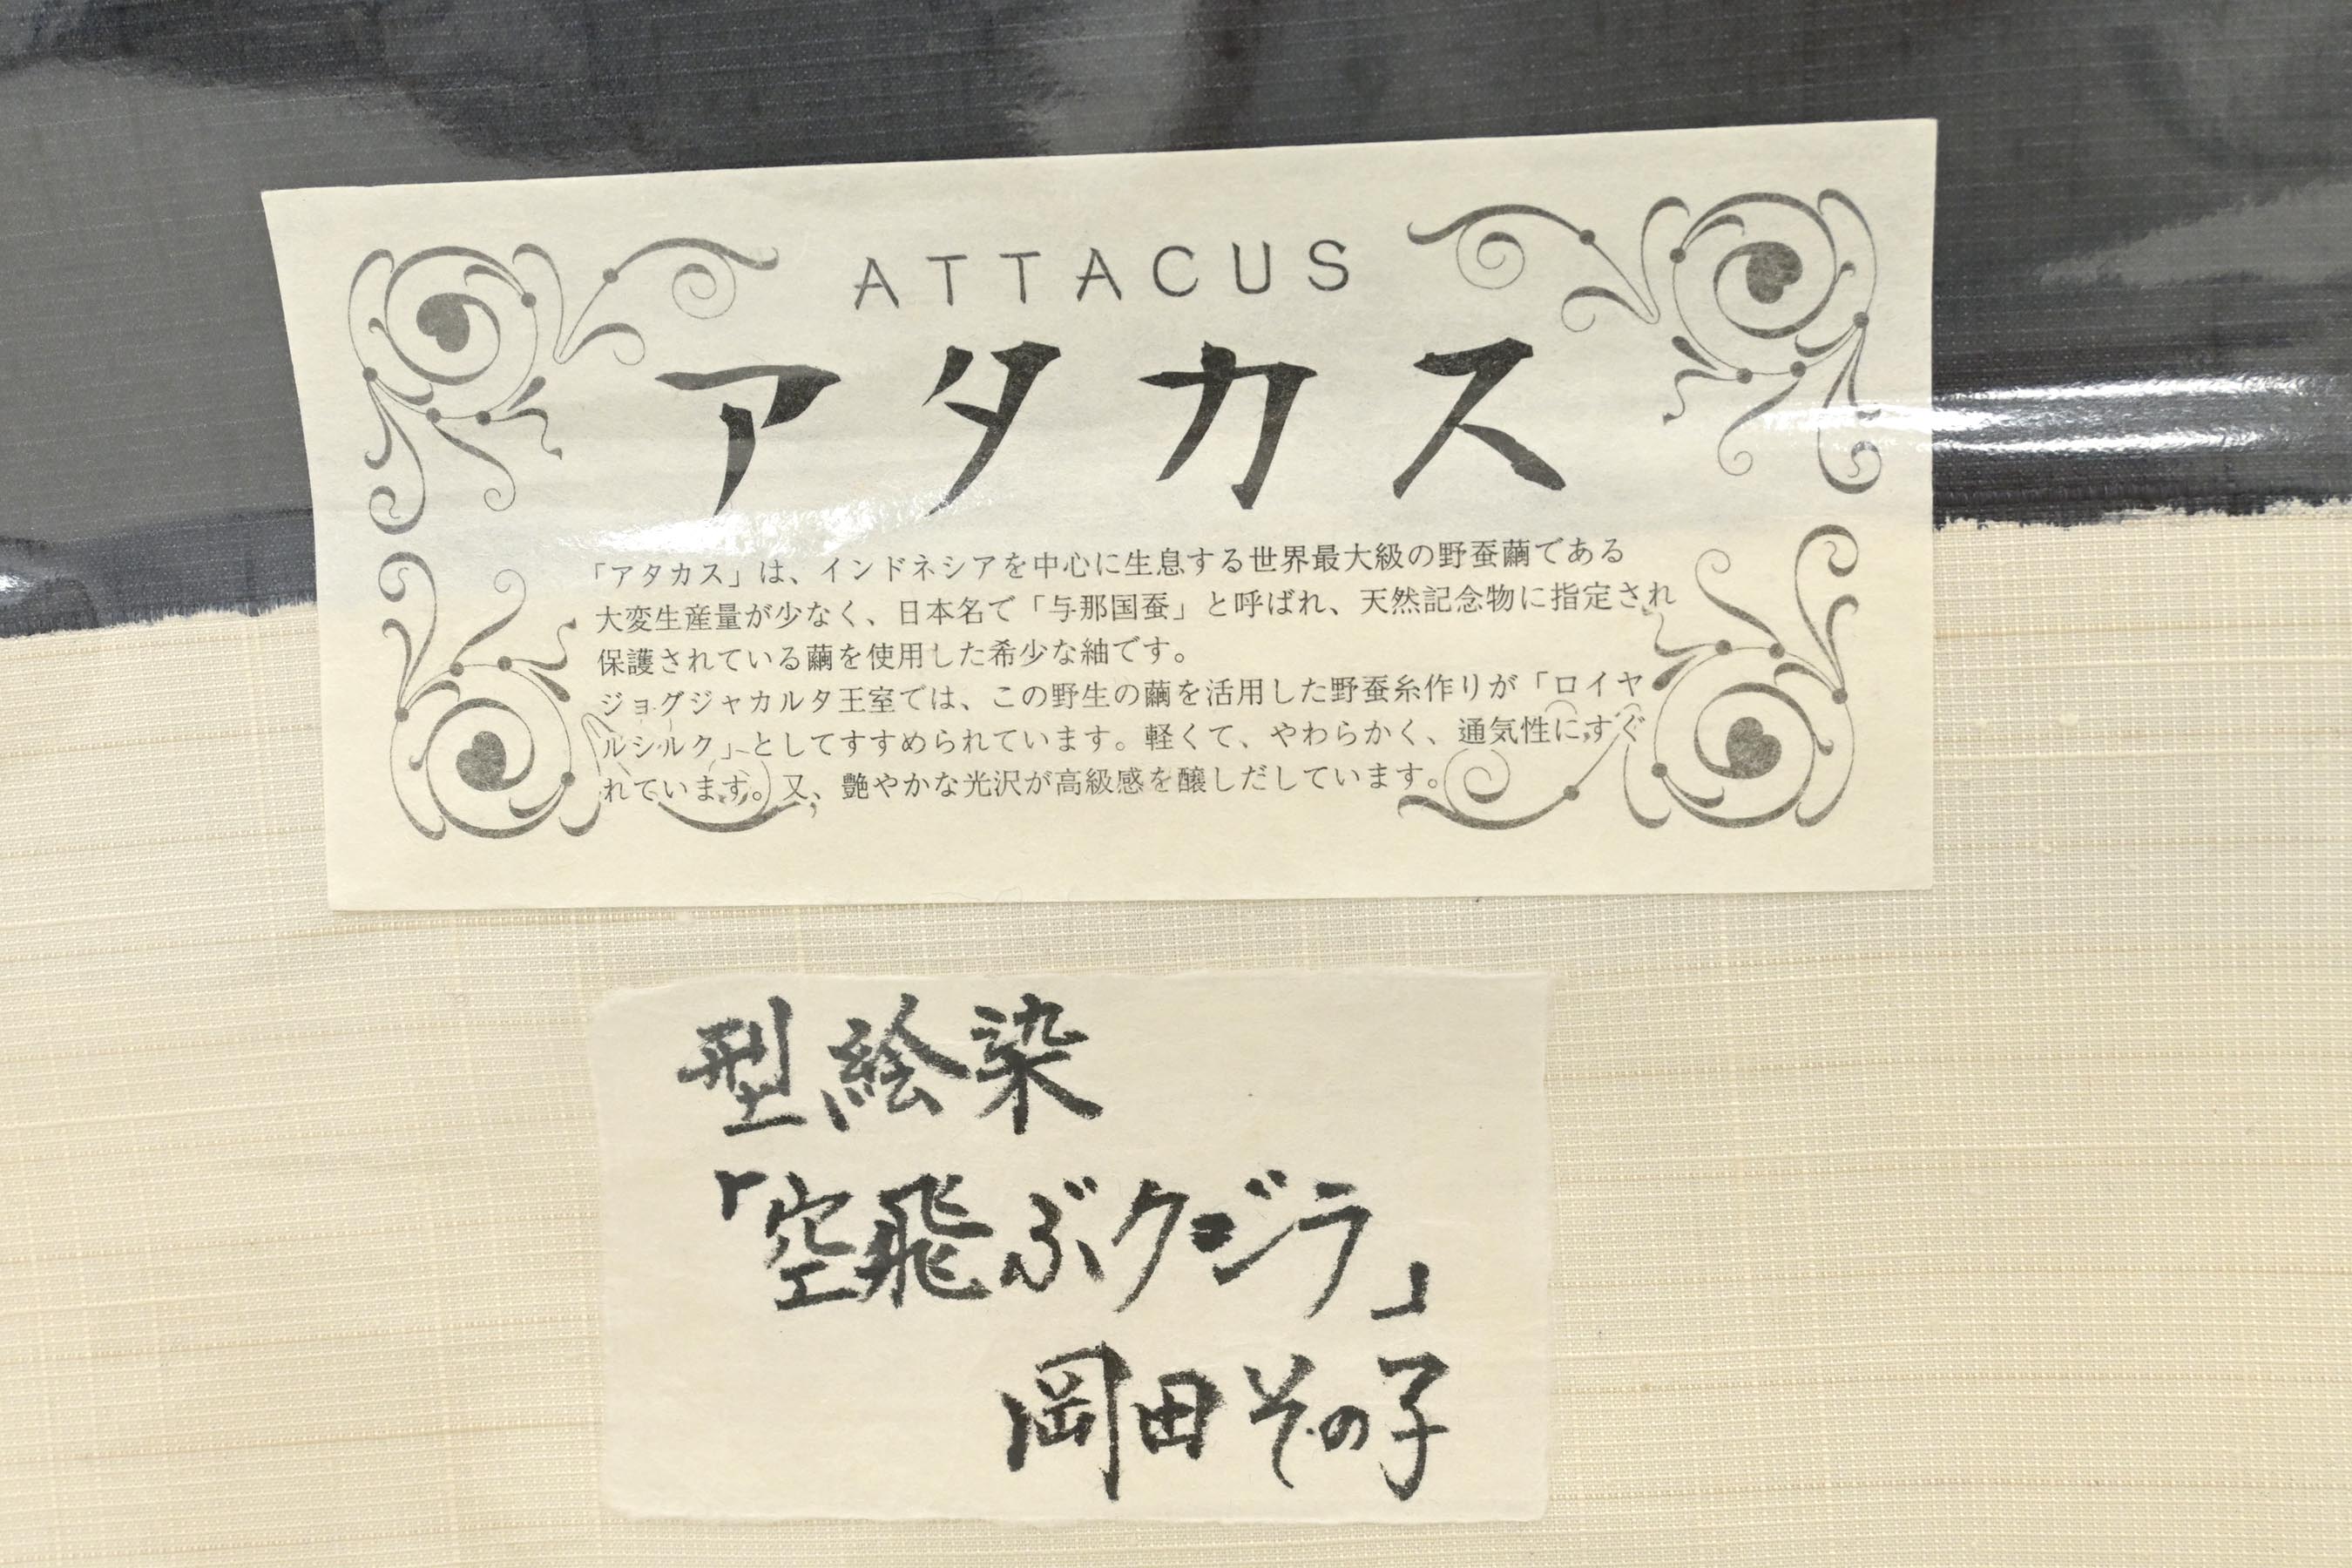 ATTACUS
アタカス
「アタカス」は、インドネシアを中心に生息する世界最大級の野蚕繭である
大変生産量が少なく、日本名で「与那国蚕」と呼ばれ、天然記念物に指定され
保護されている繭を使用した希少な紬です。
ジョグジャカルタ王室では、この野生の繭を活用した野蚕糸作りが「ロイヤ
ルシルク」としてすすめられています。軽くて、やわらかく、通気性にすぐ
れています。又、艶やかな光沢が高級感を醸しだしています。
型絵染
「空飛ぶクジラ」
岡田その子